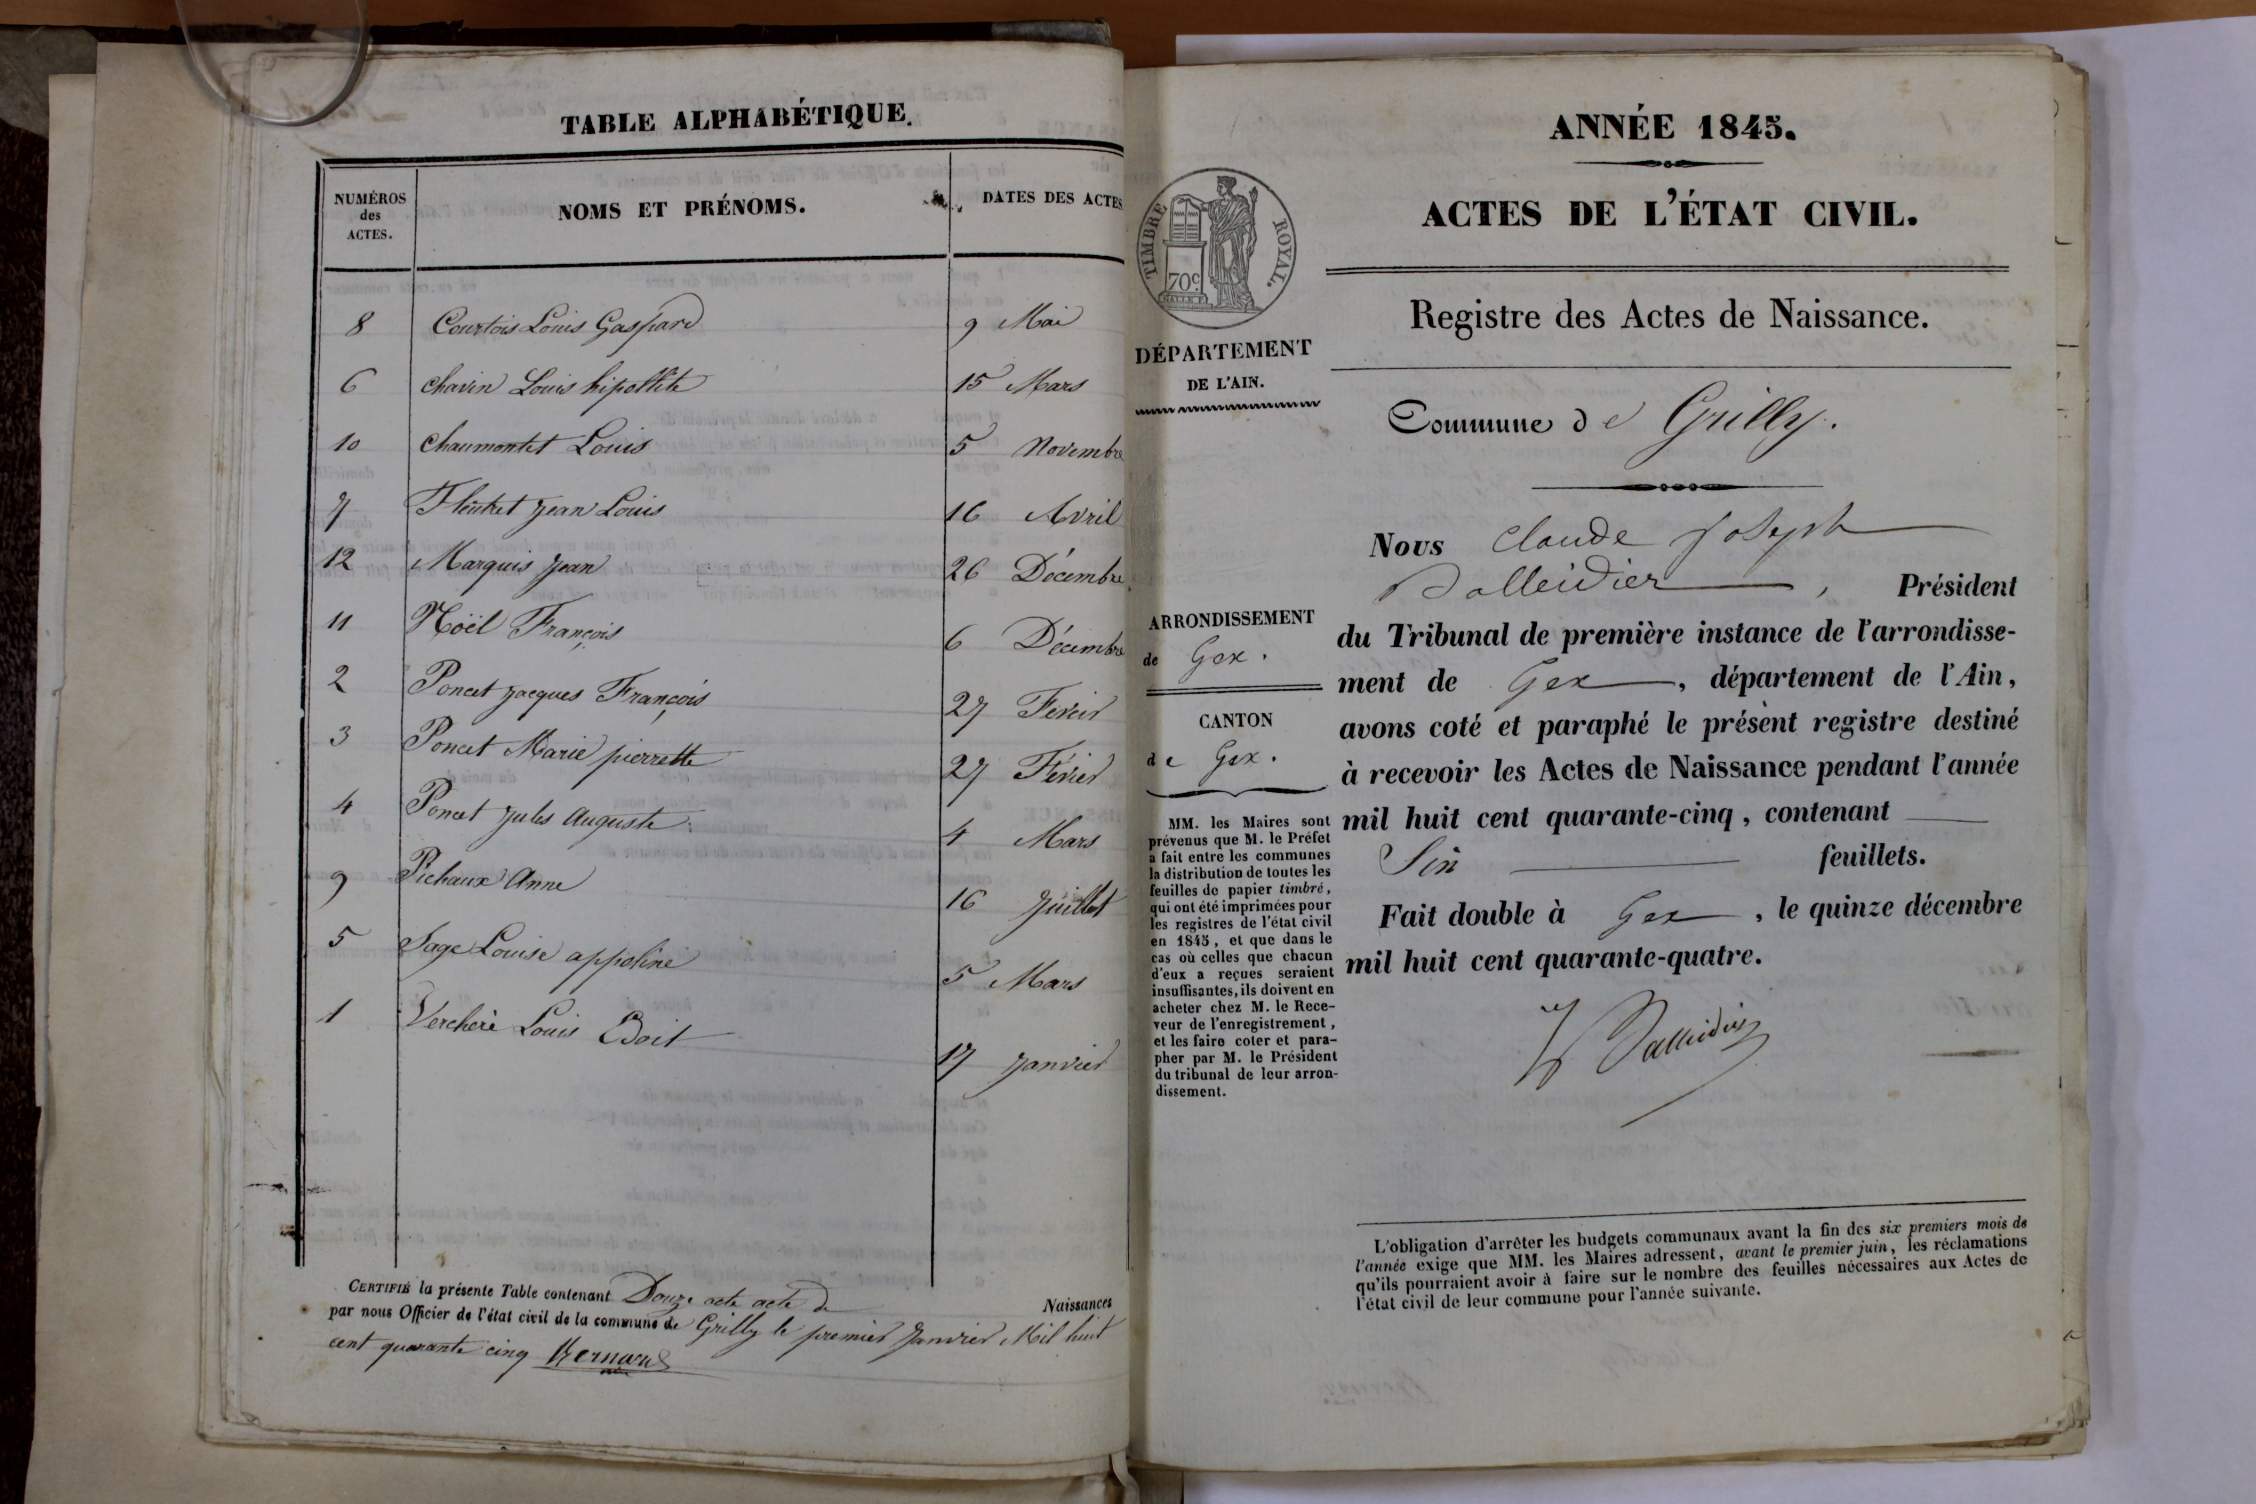 TABLE ALPHABÉTIQUE.
NUMÉROS
des
ACTES.
NOMS ET PRÉNOMS.
DATES DES ACTES
8 Courtois Louis Gaspard 9 Mai
6 Chavin Louis hipollite 15 Mars
10 Chaumontet Louis 5 Novembre
7 Jean Louis 16 Avril
12 Marquis Jean 26 Décembre
11 Noël François 6 Décembre
2 Poncet Jacques François 27
3 Poncet Marie pierrette 27 Février
4 Poncet Jules Auguste 4 Mars
9 Pichaux Anne 16 Juillet
5 Sage Louise appoline 5 Mars
1 Louis 17 Janvier
CERTIFIÉ la présente Table contenant Douze acte acte de Naissances
par nous Officier de l'état civil de la commune de Grilly le premier Janvier Mil huit
cent quarante cinq Bernard
ANNÉE 1845.
ACTES DE L'ÉTAT CIVIL.
Registre des Actes de Naissance.
Commune de Grilly.
TIMBRE ROYAL.
70c.
DÉPARTEMENT
DE L'AIN.
ARRONDISSEMENT
de Gex.
CANTON
de Gex.
MM. les Maires sont
prévenus que M. le Préfet
a fait entre les communes
la distribution de toutes les
feuilles de papier timbré,
qui ont été imprimées pour
les registres de l'état civil
en 1845, et que dans le
cas où celles que chacun
d'eux a reçues seraient
insuffisantes, ils doivent en
acheter chez M. le Rece-
veur de l'enregistrement,
et les faire coter et para-
pher par M. le Président
du tribunal de leur arron-
dissement.
Nous Claude Joseph
, Président
du Tribunal de première instance de l'arrondisse-
ment de Gex, département de l'Ain,
avons coté et paraphé le présent registre destiné
à recevoir les Actes de Naissance pendant l'année
mil huit cent quarante-cinq, contenant
feuillets.
Fait double à Gex, le quinze décembre
mil huit cent quarante-quatre.
L'obligation d'arrêter les budgets communaux avant la fin des six premiers mois de
l'année exige que MM. les Maires adressent, avant le premier juin, les réclamations
qu'ils pourraient avoir à faire sur le nombre des feuilles nécessaires aux Actes de
l'état civil de leur commune pour l'année suivante.